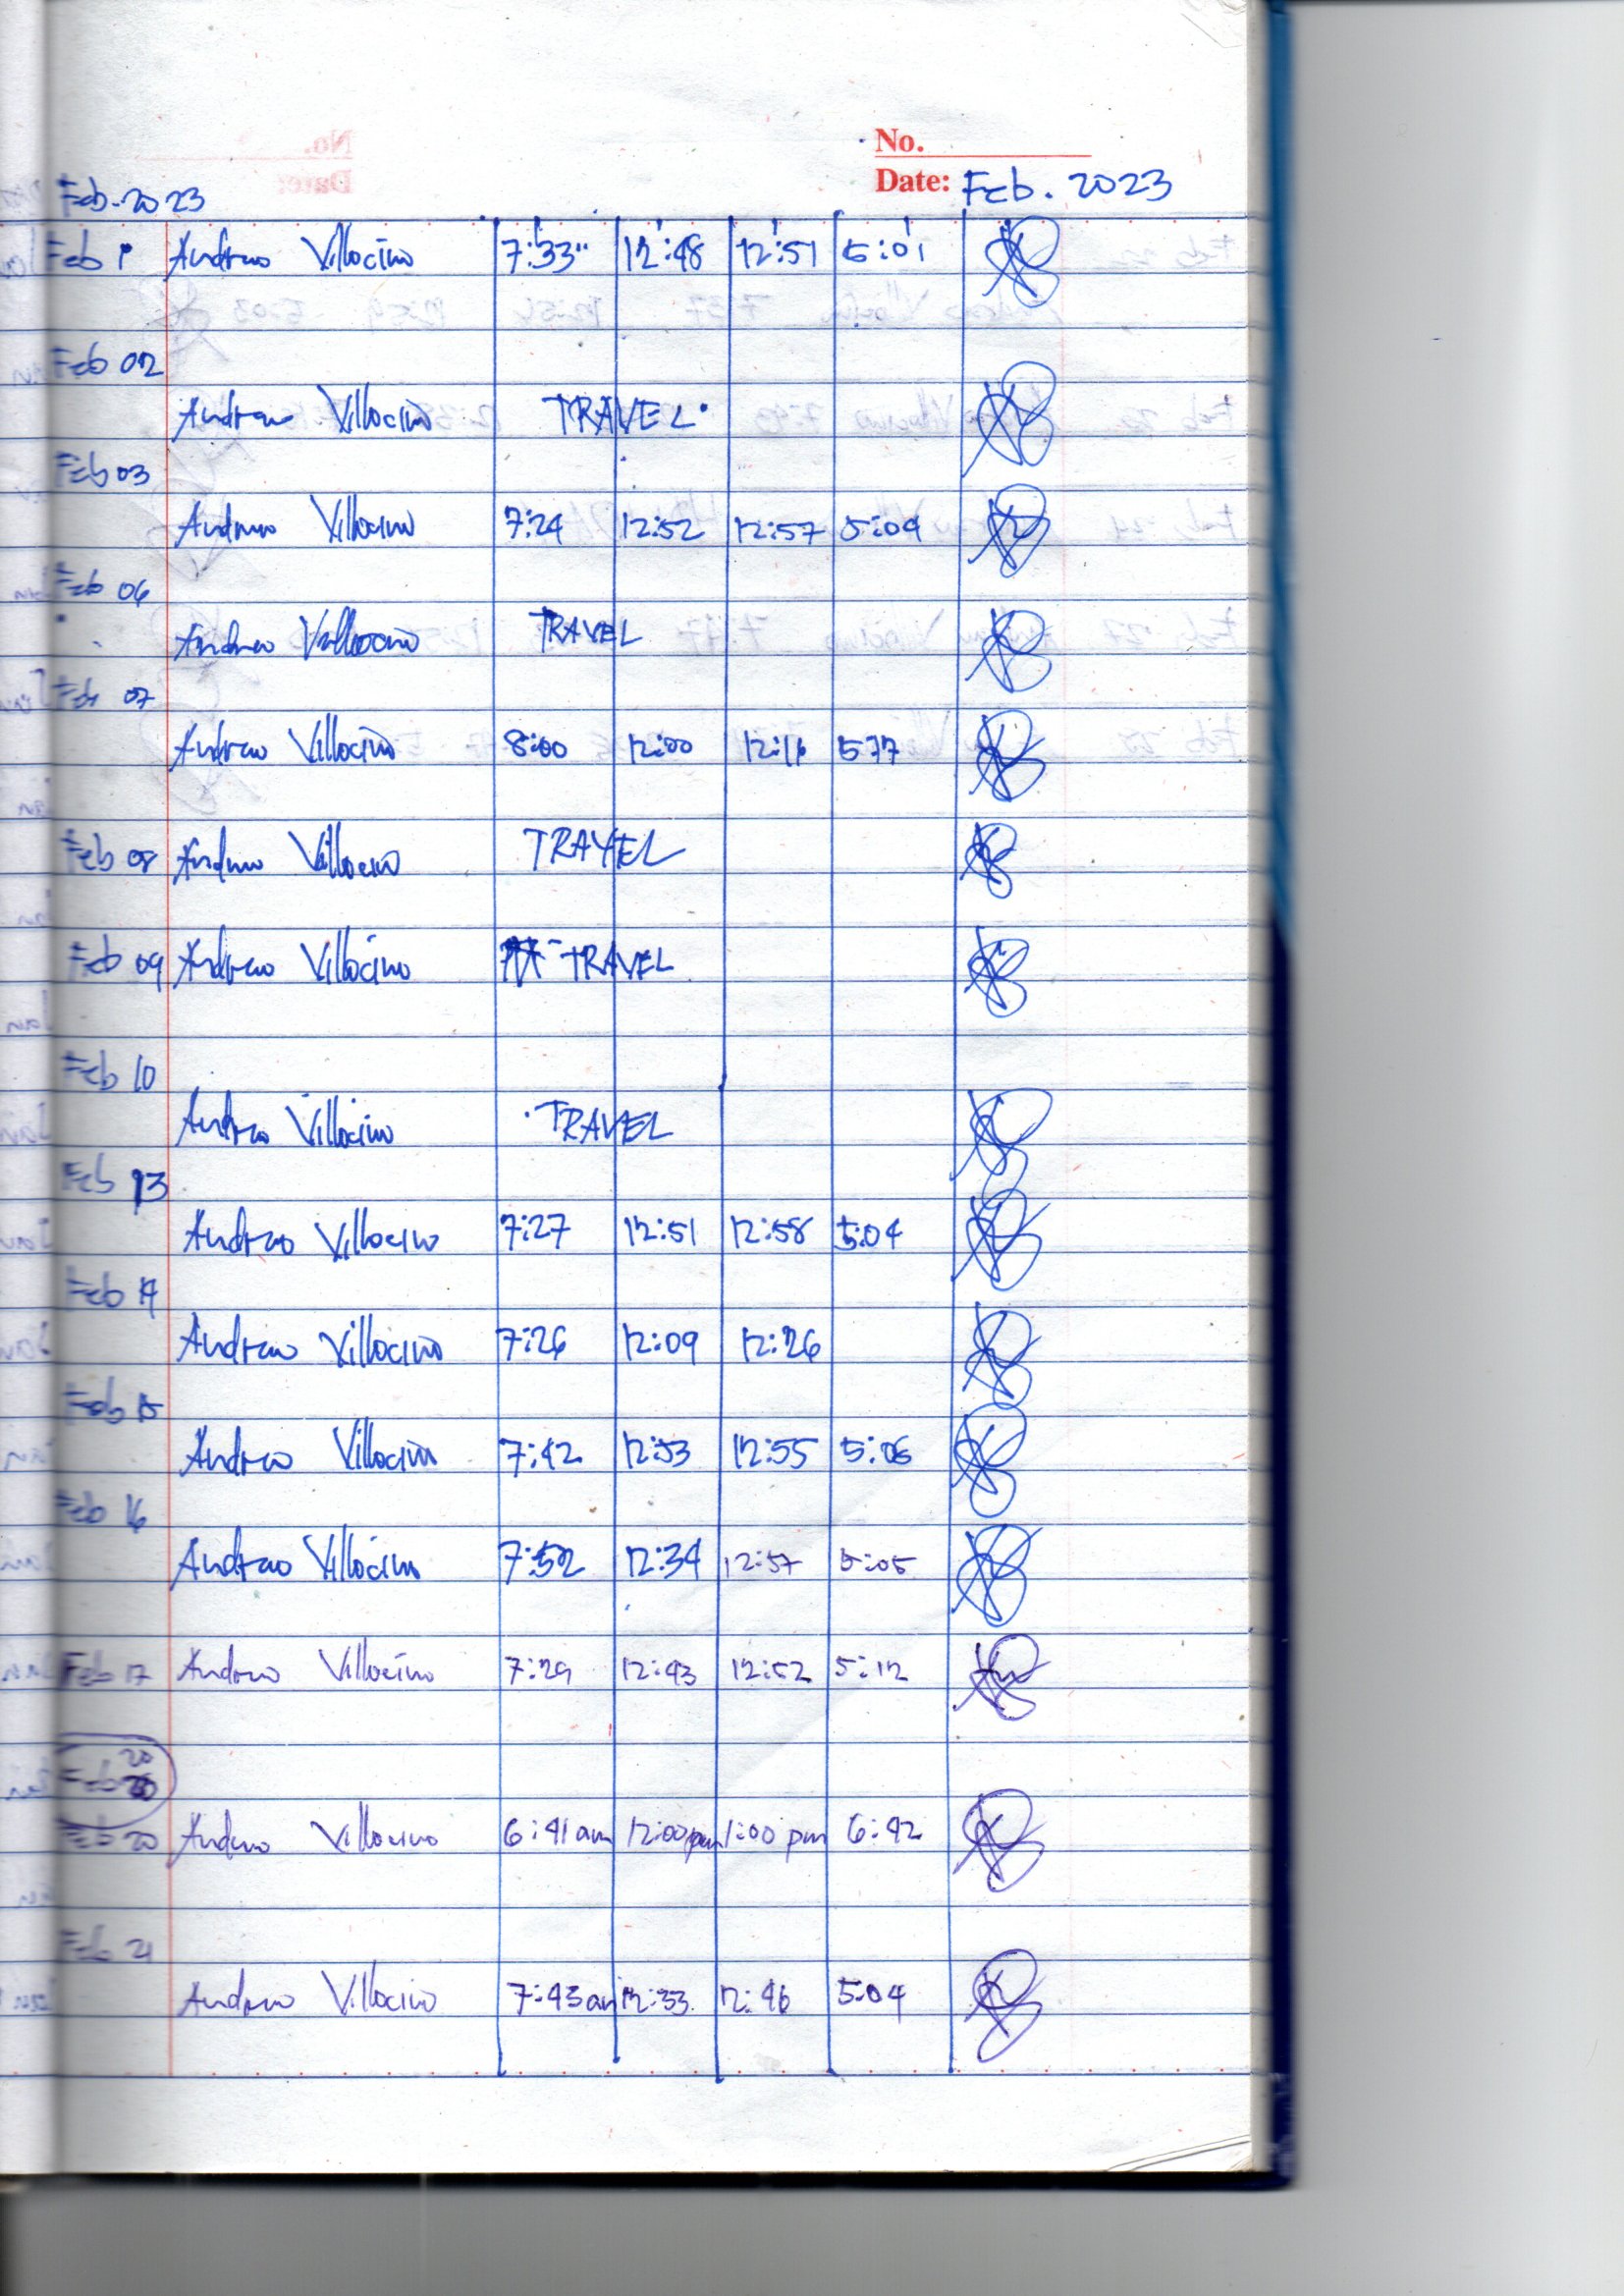 No.
Date: Feb. 2023
Feb. 2023
Feb 1 Andrew Villocino 7:33 12:48 12:51 5:01
Feb 02
Andrew Villocino TRAVEL
Feb 03
Andrew Villocino 7:24 12:52 12:57 5:09
Feb 06
Andrew Villocino TRAVEL
Feb 07
Andrew Villocino 8:00 12:00 12:16
Feb 08 Andrew Villocino TRAVEL
Feb 09 Andrew Villocino TRAVEL
Feb 10
Andrew Villocino TRAVEL
Feb 13
Andrew Villocino 7:27 12:51 12:58 5:04
Feb 14
Andrew Villocino 7:26 12:09 12:26
Feb 15
Andrew Villocino 7:42 12:53 12:55 5:06
Feb 16
Andrew Villocino 7:52 12:34 12:57 5:05
Feb 17 Andrew Villocino 7:29 12:43 12:52 5:12
Feb 20
Feb 20 Andrew Villocino 6:41 am 12:00 pm 1:00 pm 6:42
Feb 21
Andrew Villocino 7:43 am 12:33 12:46 5:04